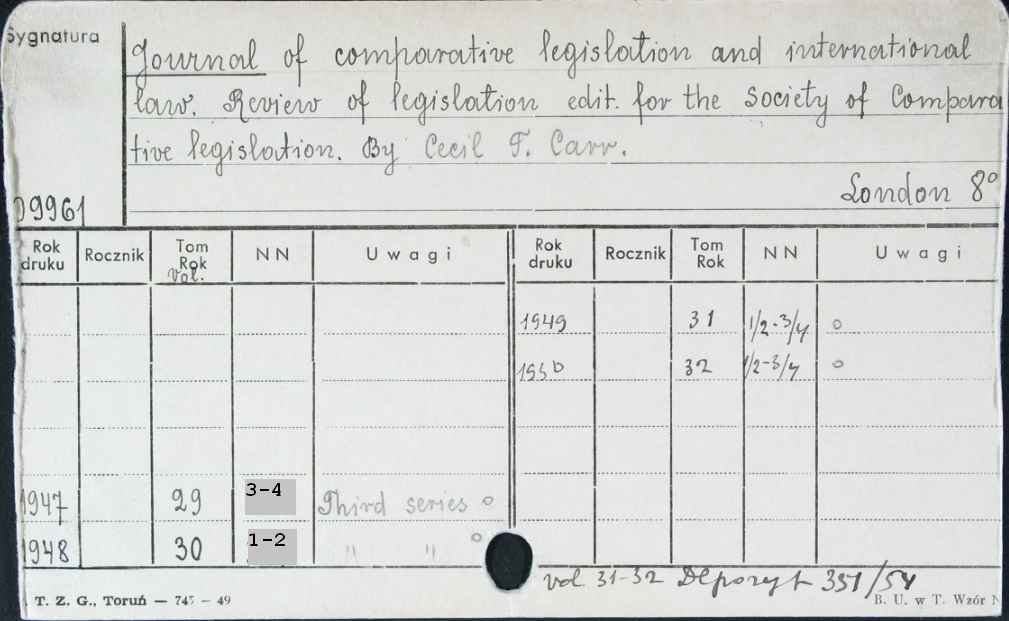 Sygnatura
Journal of comparative legislation and international
law. Review of legislation edit. for the Society of Compara
tive legislation. By Cecil F. Carr.
London 8°
09961
Rok druku Rocznik Tom Rok vol. NN Uwagi Rok druku Rocznik Tom Rok NN Uwagi
1949 31 1/2-3/4 o
1950 32 1/2-3/4 o
1947 29 3-4 Third series o
1948 30 1-2 " " o
vol. 31-32 Depozyt 351/54
T. Z. G., Toruń — 745 — 49
B. U. w T. Wzór